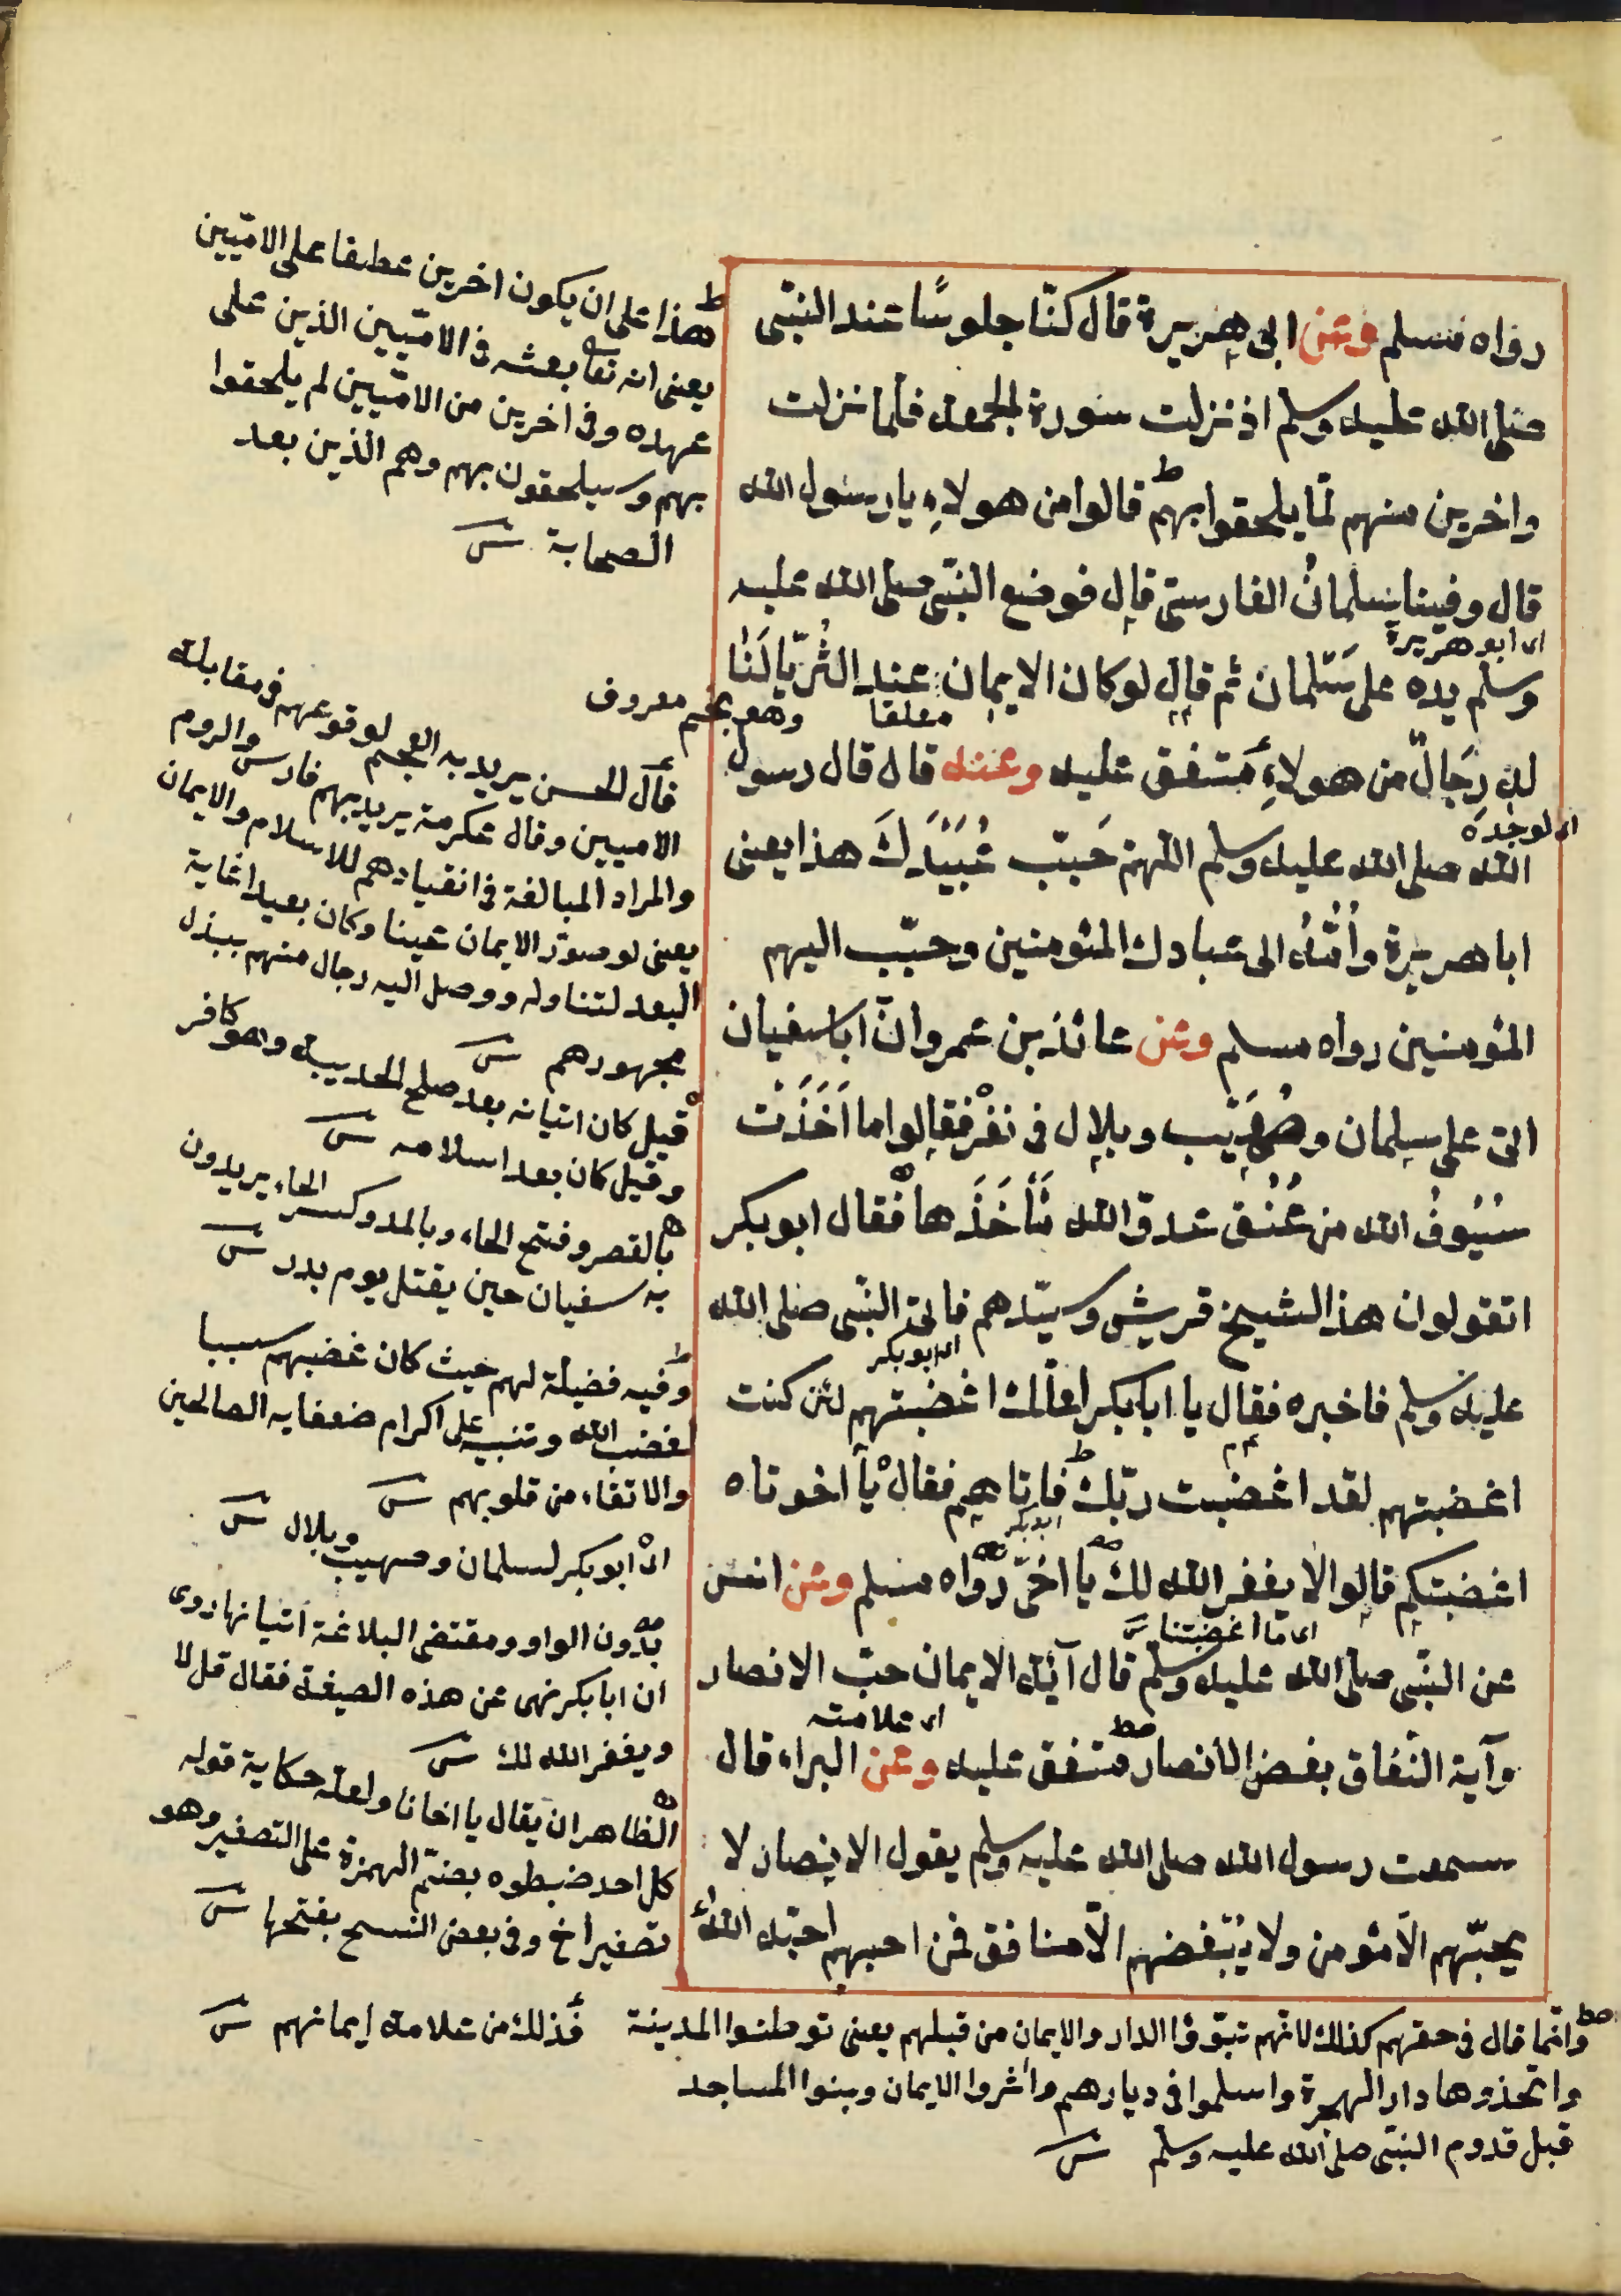 رواه مسلم وعن ابى هريرة قال كنّا جلوسًا عند النبّى
صلى الله عليه وسلم اذ نزلت سورة الجمعة فلما نزلت
واخرين منهم لمّا يلحقوا بهم قالوا من هولاءِ يا رسول الله
قال وفينا سلمانُ الفارسىّ قال فوضع النبّى صلى الله عليه
اى ابو هريرة
وسلم يده على سَلمان ثم قال لو كان الايمان عند الثُريّا لَنَا
معلقا
وهو نجم معروف
لهِ رِجَالٌ من هولاءِ متفق عليه وعنه قال قال رسول
اى لوجده
الله صلى الله عليه وسلم اللهمّ حَبّب عُبَيْدَكَ هذا يعنى
ابا هريرة وأُمَّهُ الى عبادك المؤمنين وحبّب اليهم
المؤمنين رواه مسلم وعن عائذ بن عمرو انّ ابا سفيان
اتى على سلمان وصُهَيْب وبلال فى نفْر فقالوا ما اَخَذَتْ
سُيُوفُ الله من عُنُق عدوّ الله مَأْخَذَها فقال ابو بكر
اتقولون هذا لشيخ قريش وسيّدهم فاتى النبّى صلى الله
اى ابو بكر
عليه وسلم فاخبره فقال يا ابا بكر لعلّك اغضبتهم لئن كنت
اغضبتهم لقد اغضبت ربّك فاتاهم فقال يآ اخوتاه
ابو بكر
اغضبتكم قالوا لا يغفر الله لك يا اخىّ رواه مسلم وعن انس
اى ما اغضبتنا
عن النبّى صلى الله عليه وسلم قال آية الايمان حبّ الانصار
اى علامته
وآية النّفاق بغض الانصار متفق عليه وعن البراء قال
سمعت رسول الله صلى الله عليه وسلم يقول الانصار لا
يحبّهم الاّ مؤمن ولا يُبْغضهم الاّ منافق فمن احبهم احبّه اللهُ
هذا على ان يكون اخرين عطفا على الامّيين
يعنى انه تعا بعثه فى الامّيين الذين على
عهده وفى اخرين من الامّيين لم يلحقوا
بهم وسيلحقون بهم وهم الذين بعد
الصحابة
قال الحسن يريد به العجم لوقوعهم فى مقابلة
الاميين وقال عكرمة يريد بهم فارس والروم
والمراد المبالغة فى انقيادهم للاسلام والايمان
يعنى لو صوّر الايمان عينا وكان بعيدا غاية
البعد لتناوله ووصل اليه رجال منهم ببذل
مجهودهم
قيل كان اتيانه بعد صلح الحديبية وهو كافر
وقيل كان بعد اسلامه
بالقصر وفتح الخاء وبالمد وكسر الخاء يريدون
به سفيان حين يقتل يوم بدر
وفيه فضيلة لهم حيث كان غضبهم سببا
لغضب الله وتنبيه على اكرام ضعفاء الصالحين
والاتقاء من قلوبهم
اى ابو بكر لسلمان وصهيب وبلال
بدون الواو ومقتضى البلاغة اتيانها روى
ان ابا بكر نهى عن هذه الصيغة فقال قل لا
ويغفر الله لك
الظاهر ان يقال يا اخانا ولعله حكاية قوله
كل احد ضبطوه بضمّ الهمزة على التصغير وهو
تصغير اخ وفى بعض النسخ بفتحها
وانّما قال فى حقهم كذلك لانّهم تبوّؤا الدار والايمان من قبلهم يعنى توطنوا المدينة
واتخذوها دار الهجرة واسلموا فى ديارهم واثروا الايمان وبنوا المساجد
قبل قدوم النبّى صلى الله عليه وسلم
فذلك من علامة ايمانهم